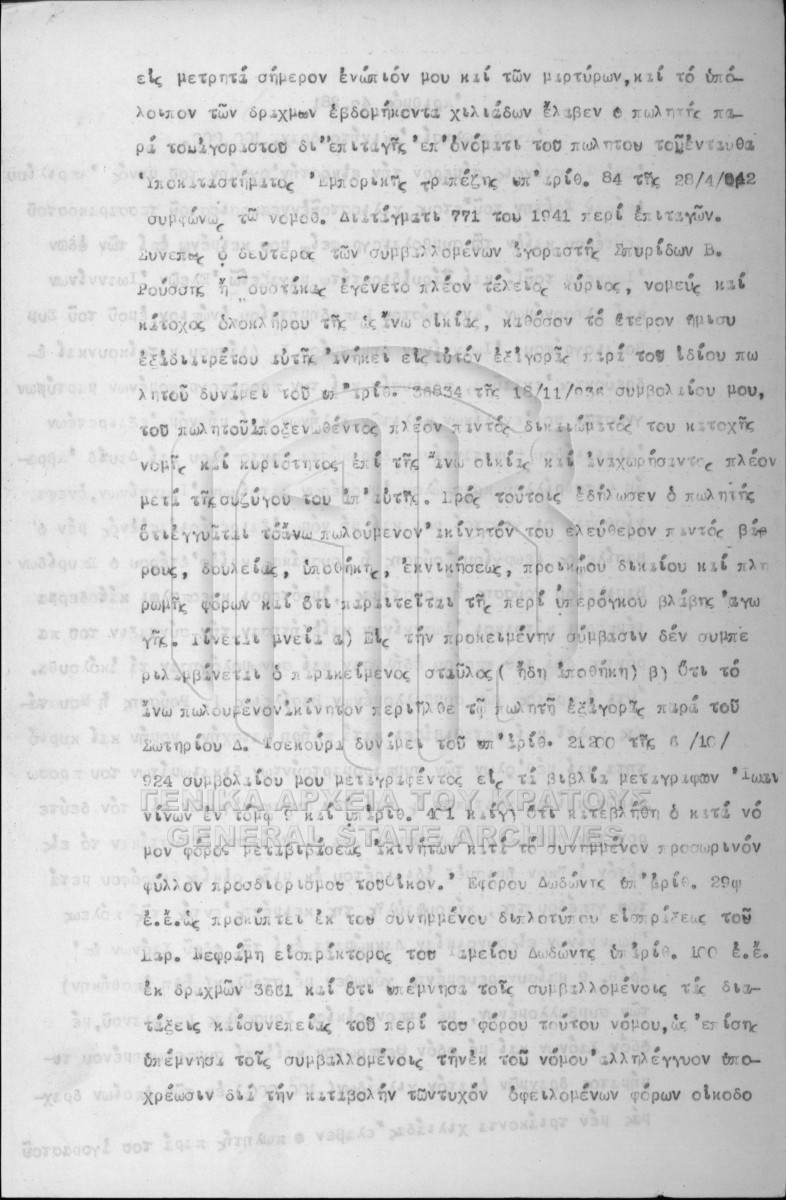 εἰς μετρητά σήμερον ἐνώπιόν μου καί τῶν μαρτύρων, καί τό ὑπό-
λοιπον τῶν δραχμων ἑβδομήκοντα χιλιάδων ἔλαβεν ο πωλητής πα-
ρά τουἀγοραστου δι'ἐπιταγῆς ἐπ'ὀνόματι του πωλητου τοῦἐνταυθα
Ὑποκαταστήματος Ἐμπορικῆς τραπέζης υπ'ἀριθ. 84 τῆς 28/4/942
συμφώνως τῶ νομοθ. Διατάγματι 771 του 1941 περί ἐπιταγῶν.
Συνεπῶς ὁ δεύτερος τῶν συμβαλλομένων ἀγοραστής Σπυρίδων Β.
Ρούσσης ἤ Φουστάκας ἐγένετο πλέον τέλειος κύριος, νομεύς καί
κάτοχος ὁλοκλήρου τῆς ὡς ἄνω οἰκίας, καθόσον τό ἕτερον ἥμισυ
ἐξἀδιαιρέτου αὐτῆς ἀνήκει εἰς αὐτόν ἐξἀγορᾶς παρά του ἰδίου πω
λητοῦ δυνάμει τοῦ υπ'ἀριθ. 36834 τῆς 18/11/936 συμβολαίου μου,
τοῦ πωλητοῦἀποξενωθέντος πλέον παντός δικαιώματός του κατοχῆς
νομῆς καί κυριότητος ἐπί τῆς ἄνω οἰκίας καί ἀναχωρήσαντος πλέον
μετά τῆςσυζύγου του ἀπ'αὐτῆς. Πρός τούτοις ἐδήλωσεν ὁ πωλητής
ὅτιἐγγυᾶται τόἄνω πωλούμενον ἀκίνητόν του ἐλεύθερον παντός βά-
ρους, δουλείας, ὑποθήκης, ἐκνικήσεως, προικώου δικαίου καί πλη
ρωμῆς φόρων καί ὅτι παραιτεῖται τῆς περί ὑπερόγκου βλάβης ἀγω
γῆς. Γίνεται μνεία α) Εἰς τήν προκειμένην σύμβασιν δέν συμπε
ριλαμβάνεται ὁ παρακείμενος σταῦλος( ἤδη ἀποθήκη) β) Ὅτι τό
ἄνω πωλουμένονἀκίνητον περιῆλθε τῷ πωλητῆ ἐξἀγορᾶς παρά τοῦ
Σωτηρίου Δ. Τσεκούρα δυνάμει τοῦ υπ'ἀριθ. 21200 τῆς 6 /10/
924 συμβολαίου μου μεταγραφέντος εἰς τά βιβλία μεταγραφων Ἰωαν
νίνων ἐν τόμῳ καί ὑπ'ἀριθ. 401 καίγ) ὅτι κατεβλήθη ὁ κατά νό
μον φόρος μεταβιβάσεως ἀκινήτων κατά τό συνημμένον προσωρινόν
φύλλον προσδιορισμου τουΟἰκον. Ἐφόρου Δωδώνης ὑπ'ἀριθ. 29φ
ἐ.ἔ.ὡς προκύπτει ἐκ του συνημμένου διπλοτύπου εἰσπράξεως τοῦ
Παρ. Νεφράμη εἰσπράκτορος του Ταμείου Δωδώνης ὑπ'ἀριθ. 100 ἐ.ἔ.
ἐκ δραχμῶν 3661 καί ὅτι υπέμνησα τοῖς συμβαλλομένοις τάς δια-
τάξεις καίσυνεπείας τοῦ περί του φόρου τούτου νόμου, ὡς ἐπίσης
ὑπέμνησα τοῖς συμβαλλομένοις τήνἐκ τοῦ νόμου ἀλληλέγγυον ὑπο-
χρέωσιν διά τήν καταβολήν τῶντυχόν ὀφειλομένων φόρων οἰκοδο
ΓΕΝΙΚΑ ΑΡΧΕΙΑ ΤΟΥ ΚΡΑΤΟΥΣ
GENERAL STATE ARCHIVES